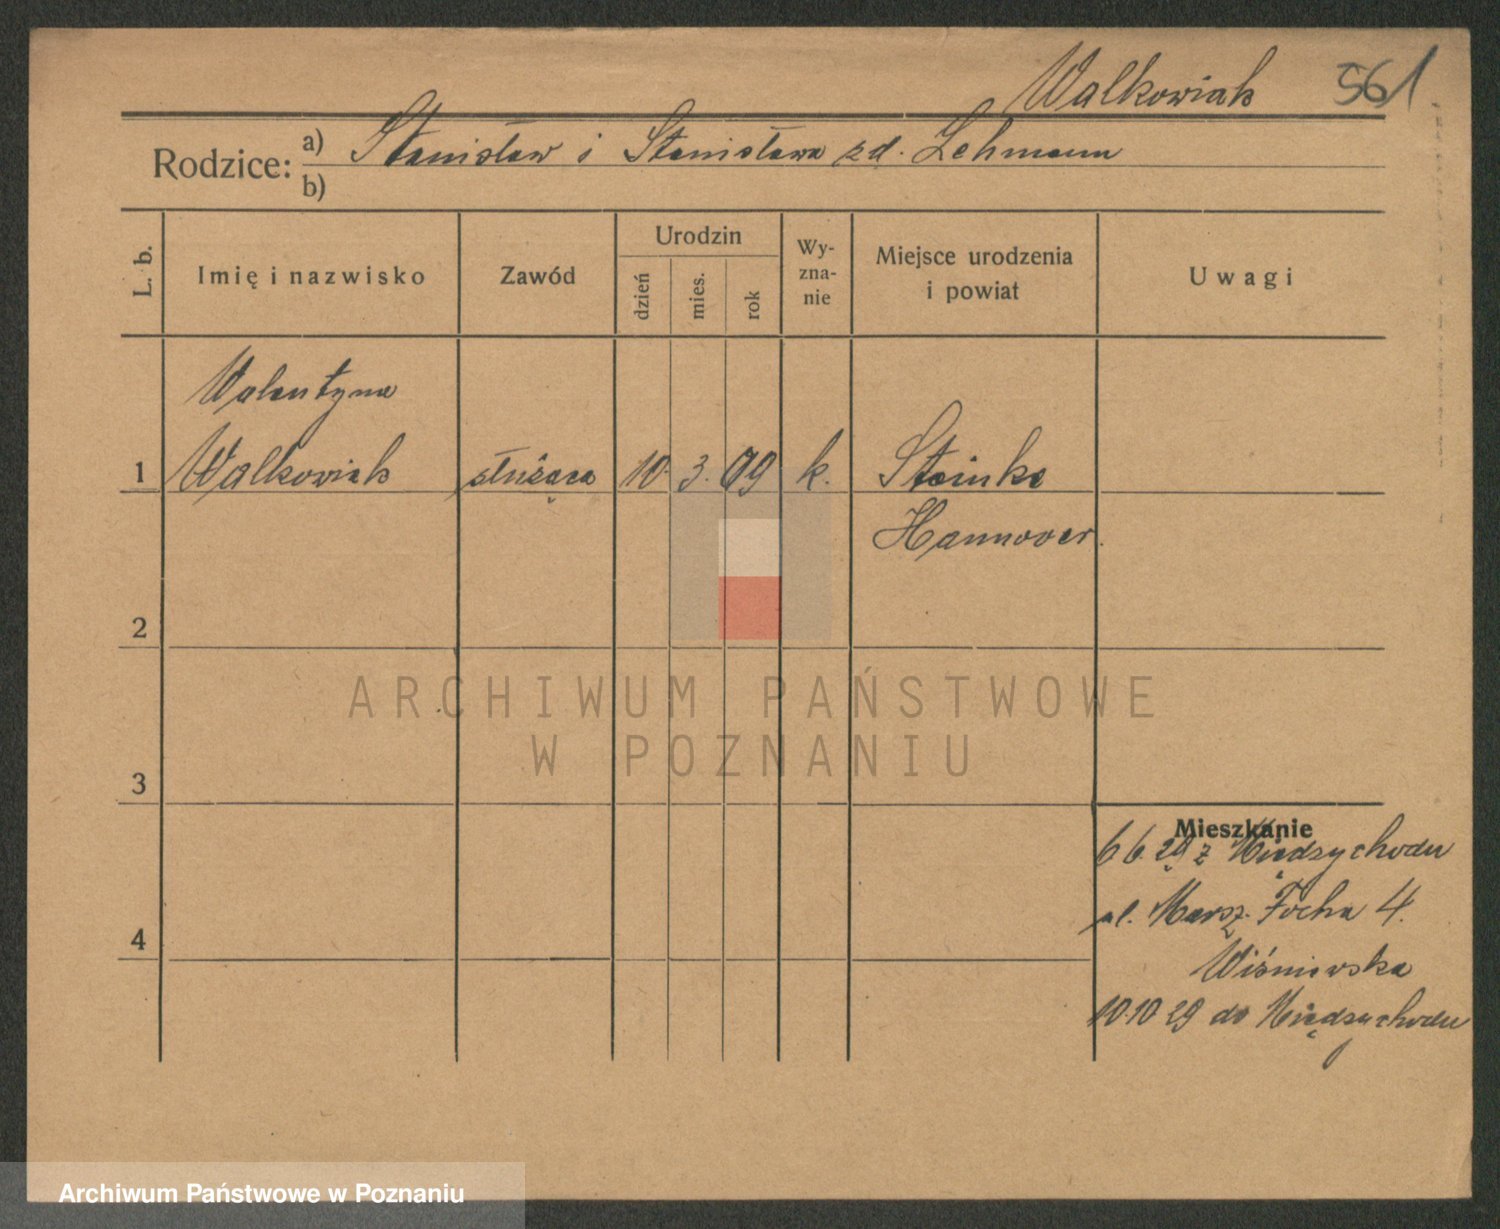 Walkowiak 561
Rodzice: a) Stanisław i Stanisława zd. Lehmann
b)
L. b. Imię i nazwisko Zawód Urodzin dzień mies. rok Wyznanie Miejsce urodzenia i powiat Uwagi
Walentyna
1 Walkowiak służąca 10. 3. 09 k. Steinke
Hannover.
2
ARCHIWUM PAŃSTWOWE
W POZNANIU
3
Mieszkanie
6 6. 29 z Międzychodu
ul. Marsz. Focha 4.
4
Wiśniewska
10.10 29 do Międzychodu
Archiwum Państwowe w Poznaniu